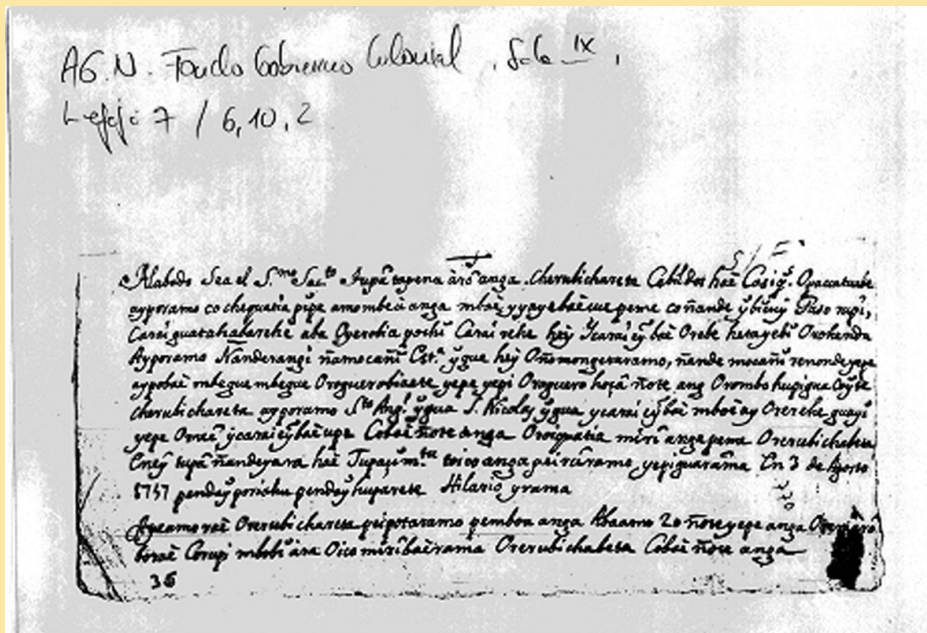 AG.N. Fondo Gobierno Colonial, Sala IX,
Legajo 7 / 6, 10, 2
Alabado Sea el S.mo Sac.to Tupâ tapena ârô anga. Cherubichareta Cabildos haè Casiq.s Opacatube
ayporamo co chequatia pipe amombeù anga mbaè yyayebaècue peme coñande ỹbiỹ Paso rupi,
Carai guatahaberehe aba Oyerobia pochỹ Carai rehe hey Ycarai eỹ baè Orebe hetayebi Orohendu
Ayporamo Ñanderangi ñamocañỹ Cast.a ỹgua hey Oñomongetaramo, ñande mocañỹ renondeyepe
aypobaè mbegue mbegue Oroguerobiaete yepe yepi Oroguerohoçâ ñote ang Orombohupigua Coỹte
cherubichareta ayporamo S.to Ang.l ỹgua S. Nicolas ỹgua ycarai eỹ baè mboè ay Orerehe
yepe Omeê ycarai eỹ baè upe Cobaè ñote anga Oroiquatia mirî anga peme Orerubichabeta
Eneỹ tupâ ñandeyara haè Tupaçim.ta toico anga peirûramo yepiguarâma En 3 de Agosto
1757 pendaỹ poriahu pendaỹ huparete Hilario yrama
Orerubichareta peipotaramo pemboù anga Abaamo 20 ñote yepe anga
Corupi mbobỹ âra Oico mirî baèrama Orerubichabeta Cobaè ñote anga
36